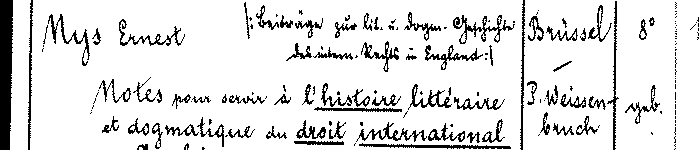 Nys Ernest |: Beiträge zur lit. u. dogm. Geschichte Brüssel 8°
des intern. Rechts in England :| –
Notes pour servir à l'histoire littéraire P. Weissen- geb.
et dogmatique du droit international bruch